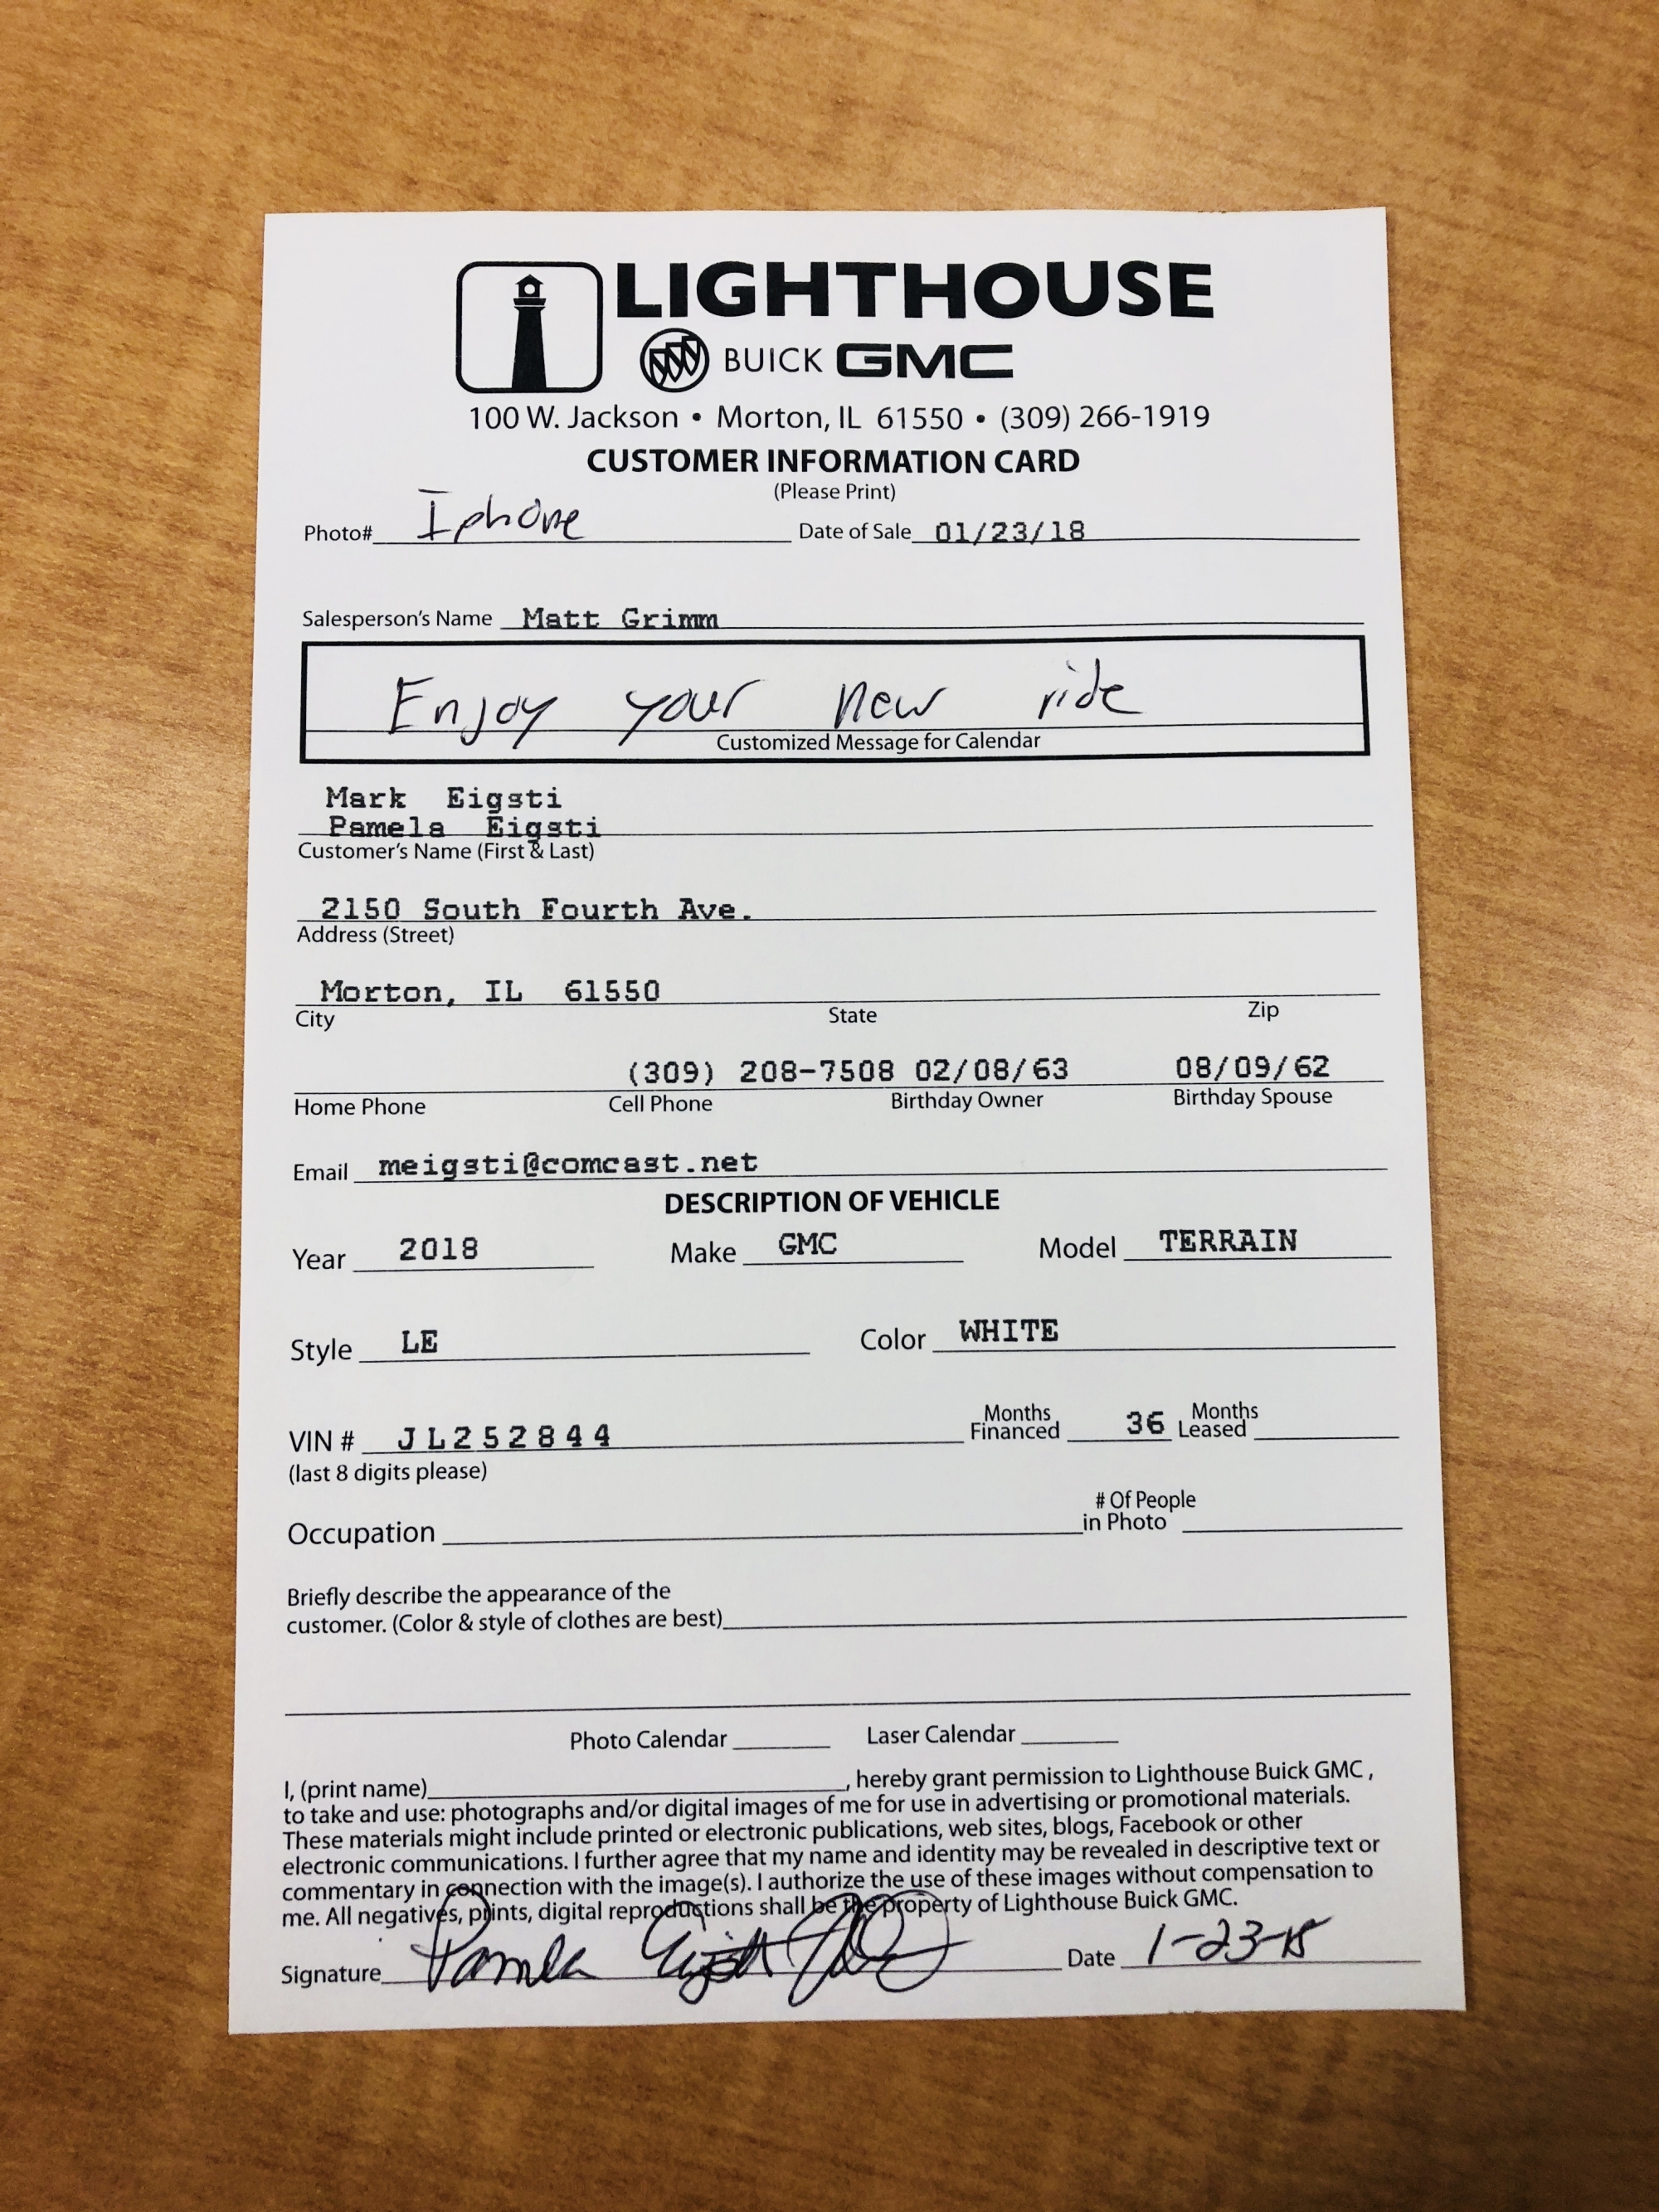 LIGHTHOUSE
BUICK GMC
100 W. Jackson • Morton, IL 61550 • (309) 266-1919
CUSTOMER INFORMATION CARD
(Please Print)
Photo# Iphone Date of Sale 01/23/18
Salesperson's Name Matt Grimm
Enjoy your new ride
Customized Message for Calendar
Mark Eigsti
Pamela Eigsti
Customer's Name (First & Last)
2150 South Fourth Ave.
Address (Street)
Morton, IL 61550
City State Zip
(309) 208-7508 02/08/63 08/09/62
Home Phone Cell Phone Birthday Owner Birthday Spouse
Email meigsti@comcast.net
DESCRIPTION OF VEHICLE
Year 2018 Make GMC Model TERRAIN
Style LE Color WHITE
VIN # JL252844 Months Financed 36 Months Leased
(last 8 digits please)
Occupation # Of People in Photo
Briefly describe the appearance of the
customer. (Color & style of clothes are best)
Photo Calendar Laser Calendar
I, (print name) , hereby grant permission to Lighthouse Buick GMC ,
to take and use: photographs and/or digital images of me for use in advertising or promotional materials.
These materials might include printed or electronic publications, web sites, blogs, Facebook or other
electronic communications. I further agree that my name and identity may be revealed in descriptive text or
commentary in connection with the image(s). I authorize the use of these images without compensation to
me. All negatives, prints, digital reproductions shall be the property of Lighthouse Buick GMC.
Signature Pamela Eigsti Date 1-23-18